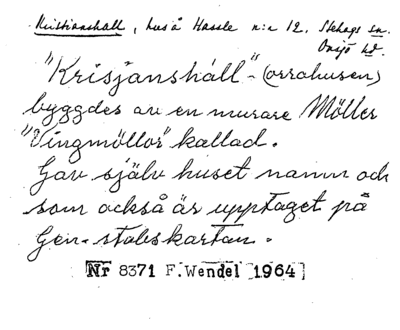 Kristianshäll, hus å Hassle n:o 12. Stehags sn.
Onsjö hd.
"Krisjanshäll"- (orrahusen)
byggdes av en murare Möller
"Vingmöllor" kallad.
Gav själv huset namn och
som också är upptaget på
Gen.stabskartan.
Nr 8371 F.Wendel 1964